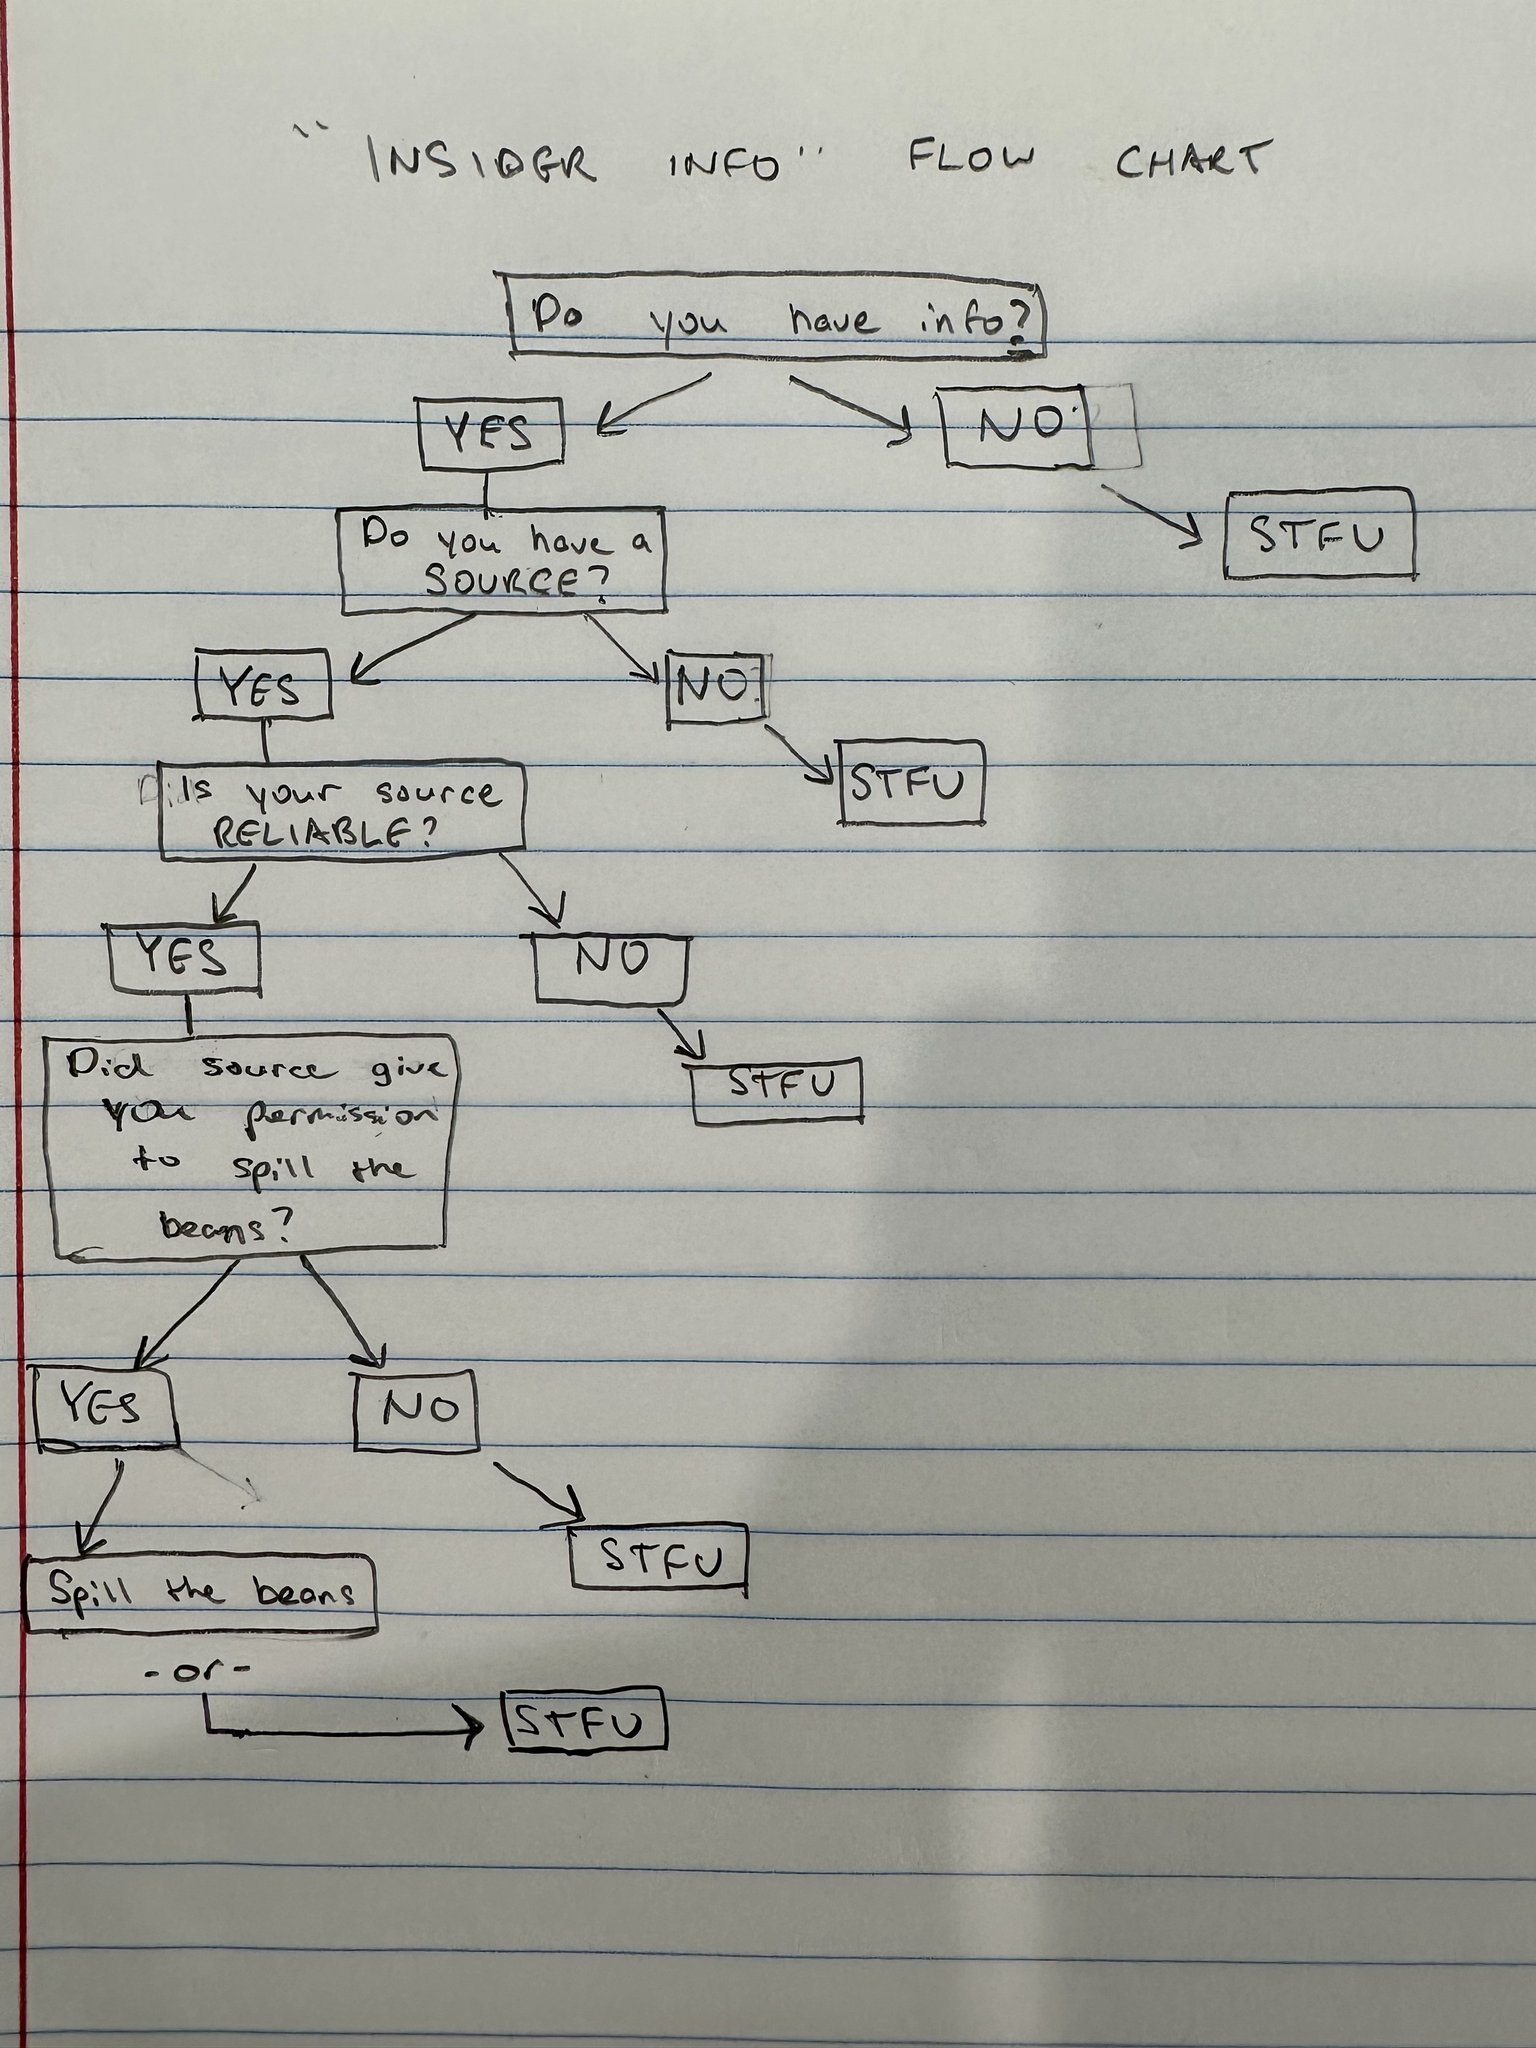 "INSIDER INFO" FLOW CHART
Do you have info?
YES
NO
STFU
Do you have a
SOURCE?
YES
NO
STFU
Is your source
RELIABLE?
YES
NO
STFU
Did source give
you permission
to spill the
beans?
YES
NO
STFU
Spill the beans
-or-
STFU